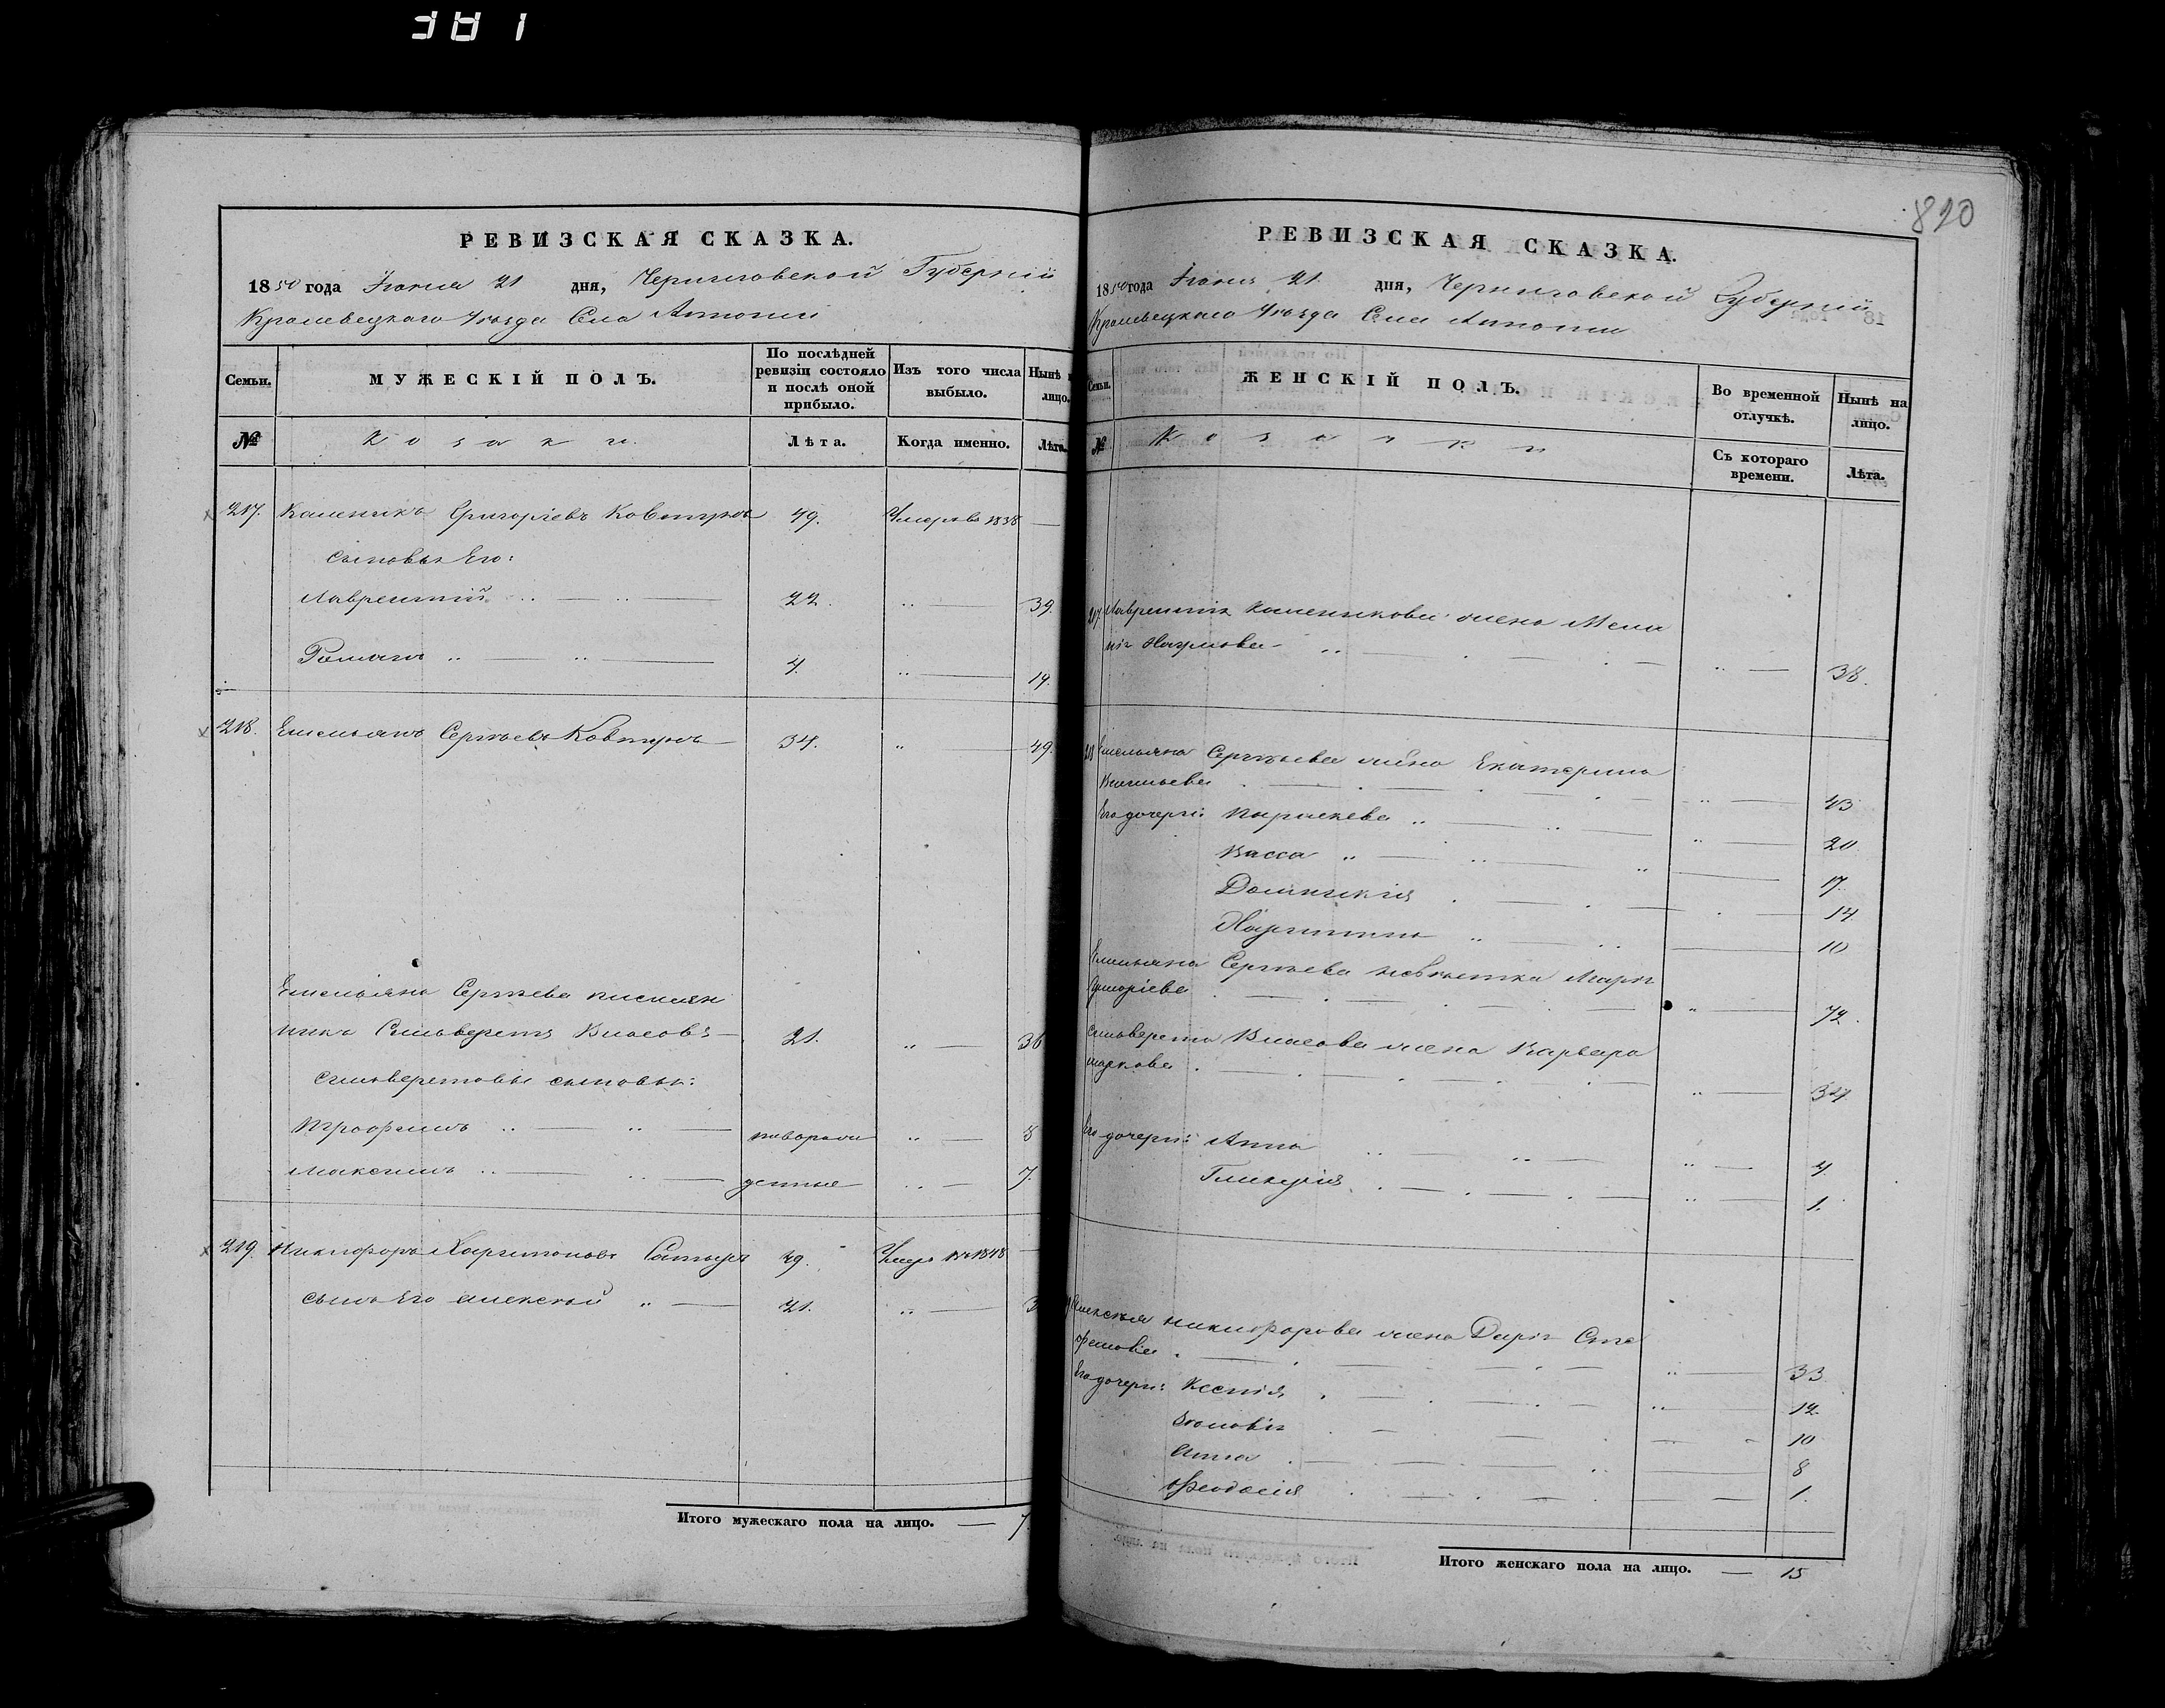 381
820
РЕВИЗСКАЯ СКАЗКА.
1850 года Іюня 21 дня, Черниговской Губерніи
Кролевецкаго Уѣзда Села
Семьи. МУЖЕСКІЙ ПОЛЪ. По послѣдней ревизіи состояло и послѣ оной прибыло. Изъ того числа выбыло. Нынѣ на лицо.
№ Козаки. Лѣта. Когда именно. Лѣта.
217. Каленикъ Григорьевъ Ковтунъ 49. Умеръ въ 1838 —
сыновья Его:
Лаврентій 22. 39.
Романъ 4. 19.
218. Емельянъ Сергѣевъ Ковтунъ 34. 49.
Емельяна Сергѣева племян
никъ Сильверстъ Власовъ 21. 36
Сильверстовы сыновья:
Трофимъ новорож 8
Максимъ денные 7.
219. Никифоръ Харитоновъ 49. Умеръ въ 1848 —
сынъ Его Алексѣй 21.
Итого мужескаго пола на лицо. — 7.
РЕВИЗСКАЯ СКАЗКА.
1850 года Іюня 21. дня, Черниговской Губерніи
Кролевецкаго Уѣзда Села
Семьи. ЖЕНСКІЙ ПОЛЪ. Во временной отлучкѣ. Нынѣ на лицо.
№ Козачки Съ котораго времени. Лѣта.
217. Лаврентія Каленикова жена Мела
нія Наумова 38.
218 Емельяна Сергѣева жена Екатерина
Васильева 43
Его дочери: Параскева 20
Васса 17.
Домникія 14
Харитина 10
Емельяна Сергѣева невѣстка Марія
Григоріева 72.
Сильверста Власова жена Варвара
Маркова 34
Его дочери: Анна 4
Гликерія 1.
Алексѣя Никифорова жена Дарія Сте
фанова 33
Его дочери: Ксенія 12.
Зиновія 10
Анна 8
Феодосія 1.
Итого женскаго пола на лицо. — 15